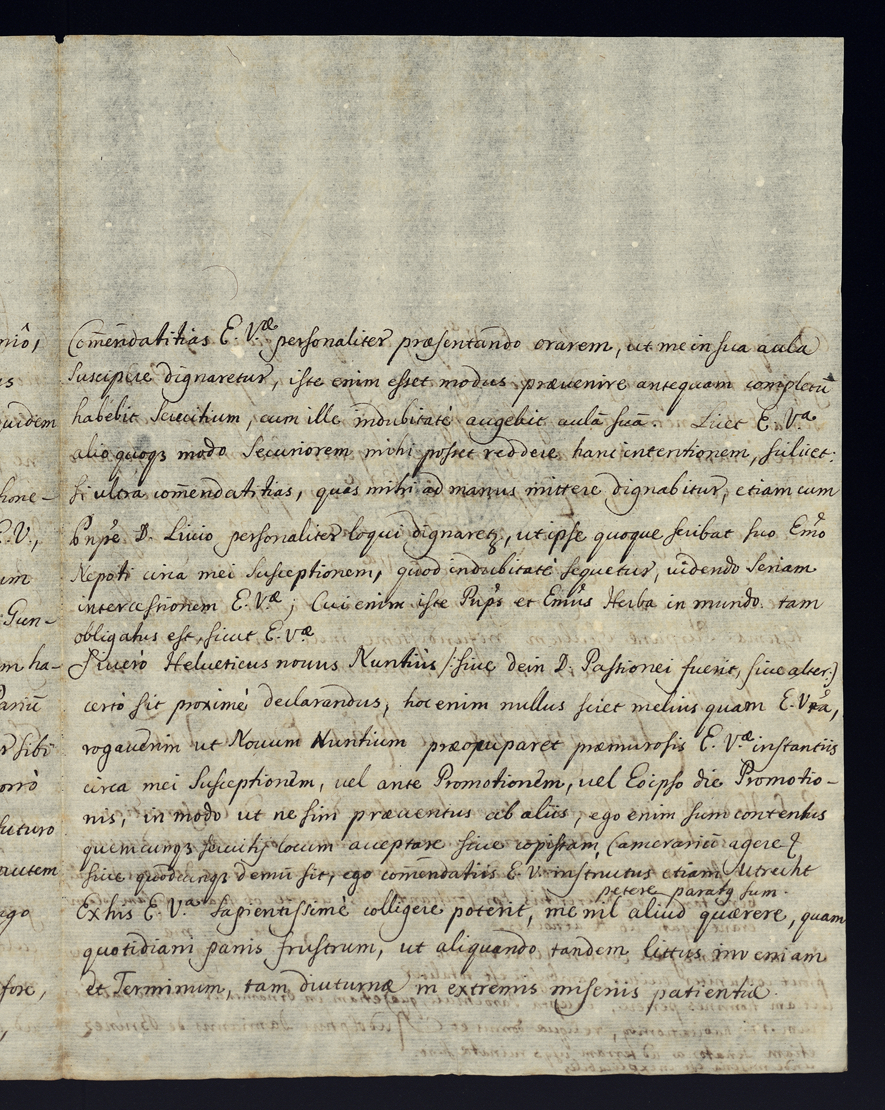 Com̃endatitias E. V.æ personaliter præsentando orarem, ut me in sua aula
suscipere dignaretur, iste enim esset modus prævenire antequam completũ
habebit Servitium, cum ille indubitatè augebit aulã suã. Licet E. Va
alio quoqʒ modo Securiorem mihi posset reddere hanc intentionem, scilicet:
si ultra com̃endatitias, quas mihi ad manus mittere dignabitur, etiam cum
D. Livio personaliter loqui dignaretʒ, ut ipse quoque scribat suo Emõ
Nepoti circa mei Susceptionem, quod indubitatè sequetur, videndo Seriam
intercessionem E. V.æ; Cui enim iste et Herba in mundo tam
obligatus est, sicut E. V.æ
Si verò Helveticus novus Nuntius /: sive dein D. Passionei fuerit, sive alter :)
certò sit proximè declarandus, hoc enim nullus sciet melius quam E. Vra,
rogaverim ut Novum Nuntium præoccuparet præmurosis E. V.æ instantiis
circa mei Susceptionem, vel ante Promotionem, vel Eoipso die Promotio-
nis, in modo ut ne sim præventus ab aliis, ego enim sum contentus
quemcunqʒ servitij locum acceptare sive copistam, Camerariũ agere
sive quodcunqʒ demũ sit, ego com̃endatiis E. V. instructus etiam Utrecht
petere paratʒ sum.
Ex his E. V.a Sapientissimè colligere poterit, me nil aliud quærere, quam
quotidiani panis frustrum, ut aliquando tandem littus inveniam
et Terminum, tam diuturnæ in extremis miseriis patientiæ.
niô,
us
quidem
hone-
E. V.,
um
Gun-
m ha-
Pariũ
r sibi
orrò
futuro
autem
ago
fore,